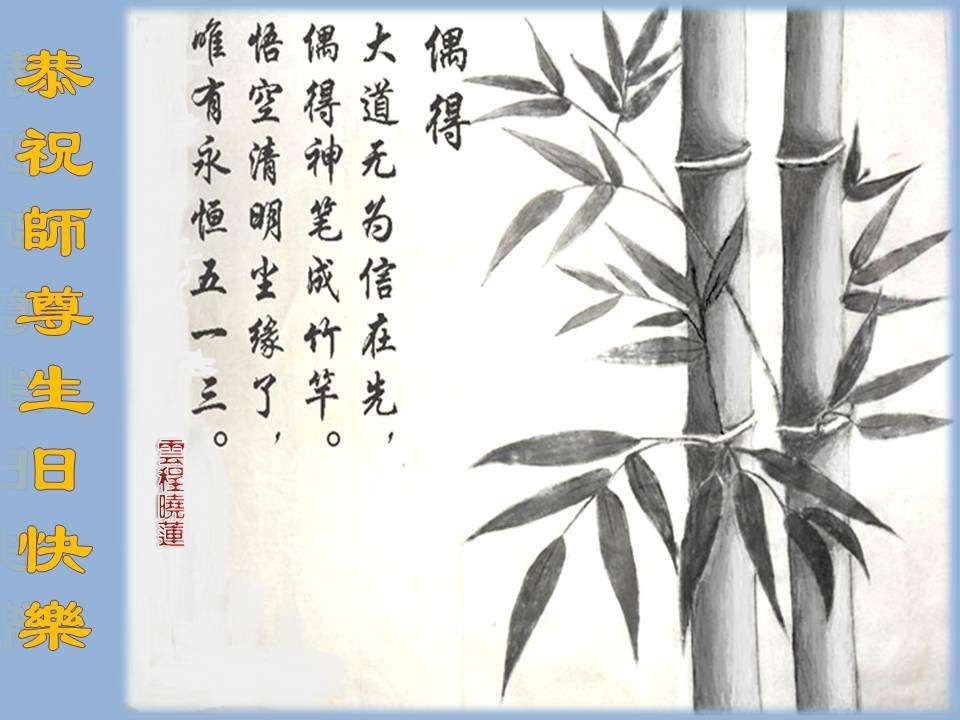 恭祝師尊生日快樂
偶得
大道无为信在先，
偶得神笔成竹竿。
悟空清明尘缘了，
唯有永恒五一三。
雲程曉蓮